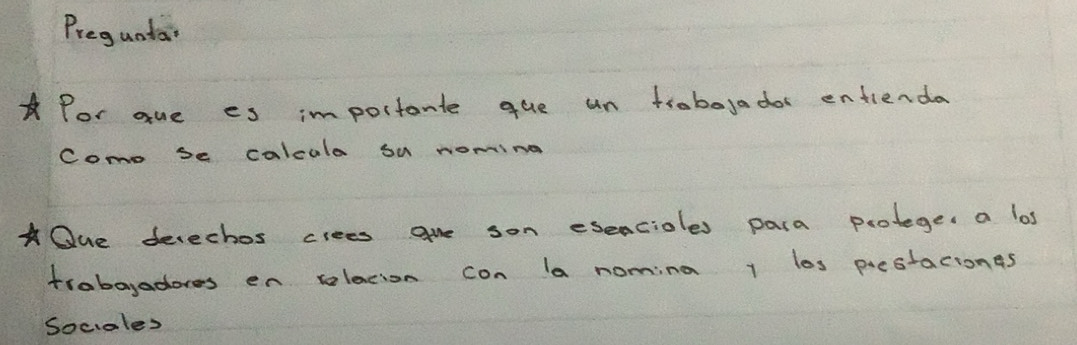 Preguntas
☆ Por que es importante que un trabajador entienda
como se calcula su nomina
☆ Que derechos crees que son esenciales para proteger a los
trabajadores en relacion con la nomina y los prestaciones
sociales